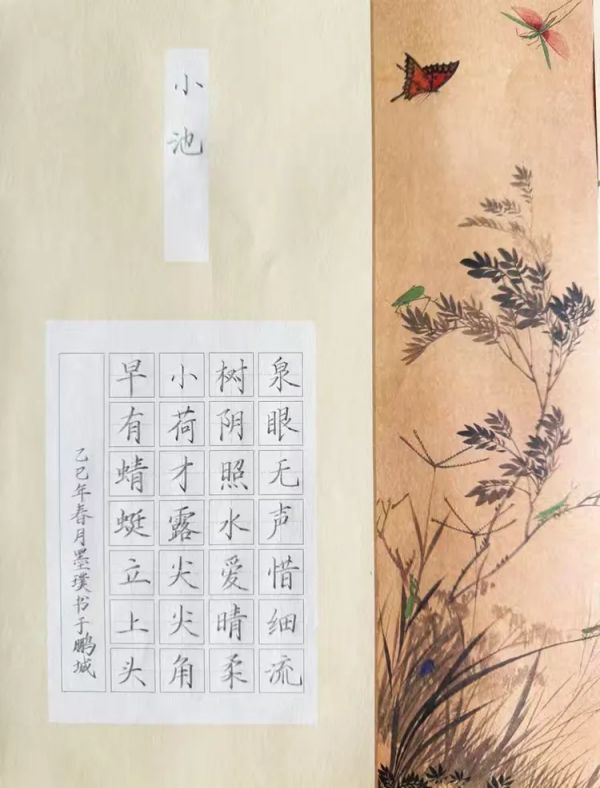 小池
泉眼无声惜细流
树阴照水爱晴柔
小荷才露尖尖角
早有蜻蜓立上头
乙巳年春月墨璞书于鹏城